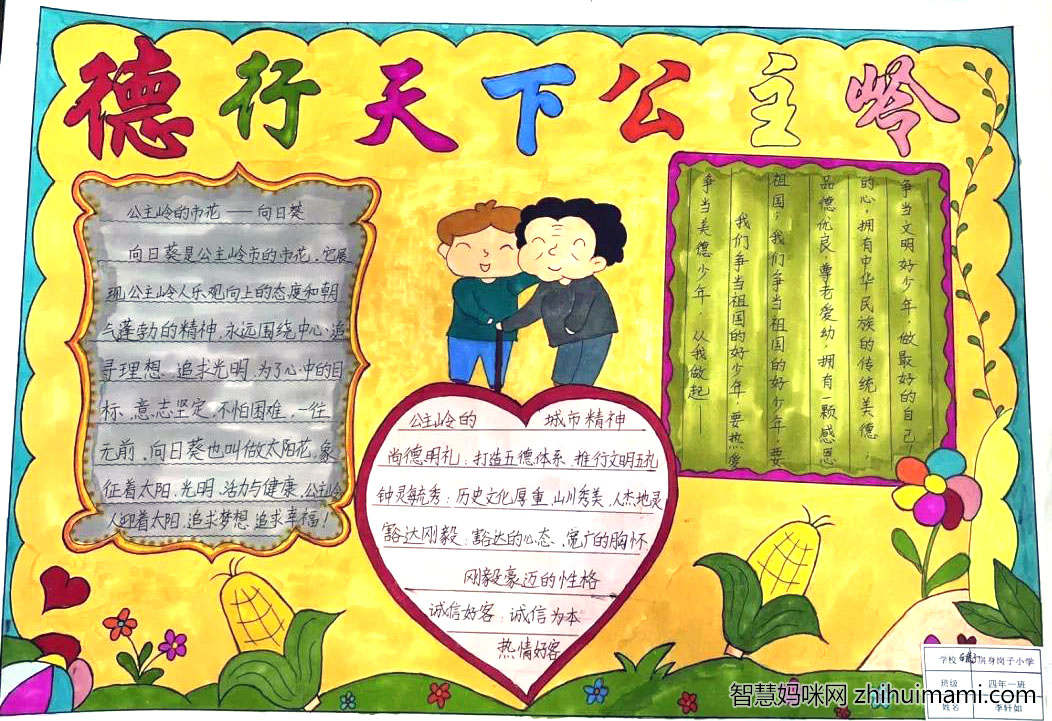 德行天下公主岭
公主岭的市花——向日葵
向日葵是公主岭市的市花,它展
现公主岭人乐观向上的态度和朝
气蓬勃的精神,永远围绕中心,追
寻理想、追求光明,为了心中的目
标,意志坚定,不怕困难,一往
无前,向日葵也叫做太阳花,象
征着太阳、光明、活力与健康,公主岭
人迎着太阳,追求梦想,追求幸福!
争当文明好少年,做最好的自己!
的心,拥有中华民族的传统美德;
品德优良,尊老爱幼,拥有一颗感恩
祖国;我们争当祖国的好少年,要
我们争当祖国的好少年,要热爱
争当美德少年,从我做起——
公主岭的 城市精神
尚德明礼:打造五德体系、推行文明五礼
钟灵毓秀:历史文化厚重,山川秀美,人杰地灵
豁达刚毅:豁达的心态、宽广的胸怀、
刚毅豪迈的性格
诚信好客:诚信为本
热情好客
学校 房身岗子小学
班级 四年一班
姓名 李轩如
智慧妈咪网 zhihuimami.com